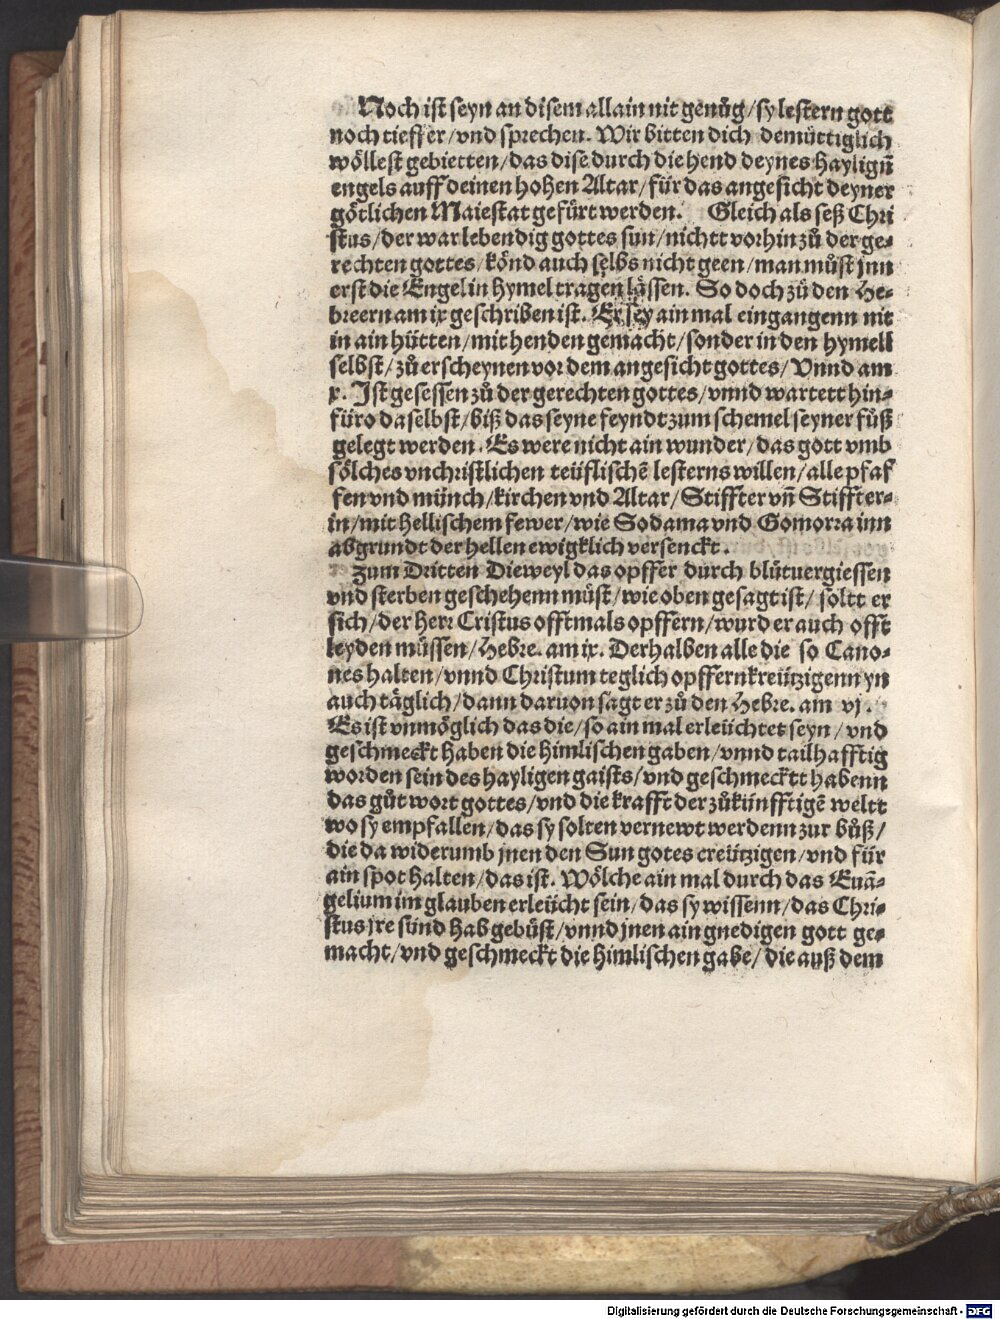 Noch ist seyn an disem allain nit genůg/sy lestern gott
noch tieffer/vnd sprechen. Wir bitten dich demüttiglich
wöllest gebietten/das dise durch die hend deynes hayligñ
engels auff deinen hohen Altar/für das angesicht deyner
götlichen Maiestat gefürt werden. Gleich als seß Chri
stus/der war lebendig gottes sun/nichtt vorhin zů der ge-
rechten gottes/könd auch selbs nicht geen/man můst jnn
erst die Engel in hymel tragen lassen. So doch zů den He-
breern am ix geschriben ist. Er sey ain mal eingangenn nit
in ain hütten/mit henden gemacht/sonder in den hymell
selbst/zů erscheynen vor dem angesicht gottes/Vnnd am
x. Ist gesessen zů der gerechten gottes/vnnd wartett hin-
füro daselbst/biß das seyne feyndt zum schemel seyner fůß
gelegt werden. Es were nicht ain wunder/das gott vmb
sölches vnchristlichen teüflischē lesterns willen/alle pfaf
fen vnd münch/kirchen vnd Altar/Stiffter vñ Stiffter-
in/mit hellischem fewer/wie Sodama vnd Gomorra inn
abgrundt der hellen ewigklich versenckt.
Zum Dritten Dieweyl das opffer durch blůtuergiessen
vnd sterben geschehenn můst/wie oben gesagt ist/soltt er
sich/der Herr Cristus offtmals opffern/wurd er auch offt
leyden müssen/Hebre. am ix. Derhalben alle die so Cano-
nes halten/vnnd Christum teglich opffern kreützigenn yn
auch täglich/dann daruon sagt er zů den Hebre. am vj.
Es ist vnmöglich das die/so ain mal erleüchtet seyn/vnd
geschmeckt haben die himlischen gaben/vnnd tailhafftig
worden sein des hayligen gaists/vnd geschmecktt habenn
das gůt wort gottes/vnd die krafft der zůkünfftigē weltt
wo sy empfallen/das sy solten vernewt werdenn zur bůß/
die da widerumb jnen den Sun gotes creützigen/vnd für
ain spot halten/das ist. Wölche ain mal durch das Euā-
gelium im glauben erleücht sein/das sy wissenn/das Chri-
stus jre sünd hab gebüst/vnnd jnen ain gnedigen gott ge-
macht/vnd geschmeckt die himlischen gabe/die auß dem
Digitalisierung gefördert durch die Deutsche Forschungsgemeinschaft - DFG